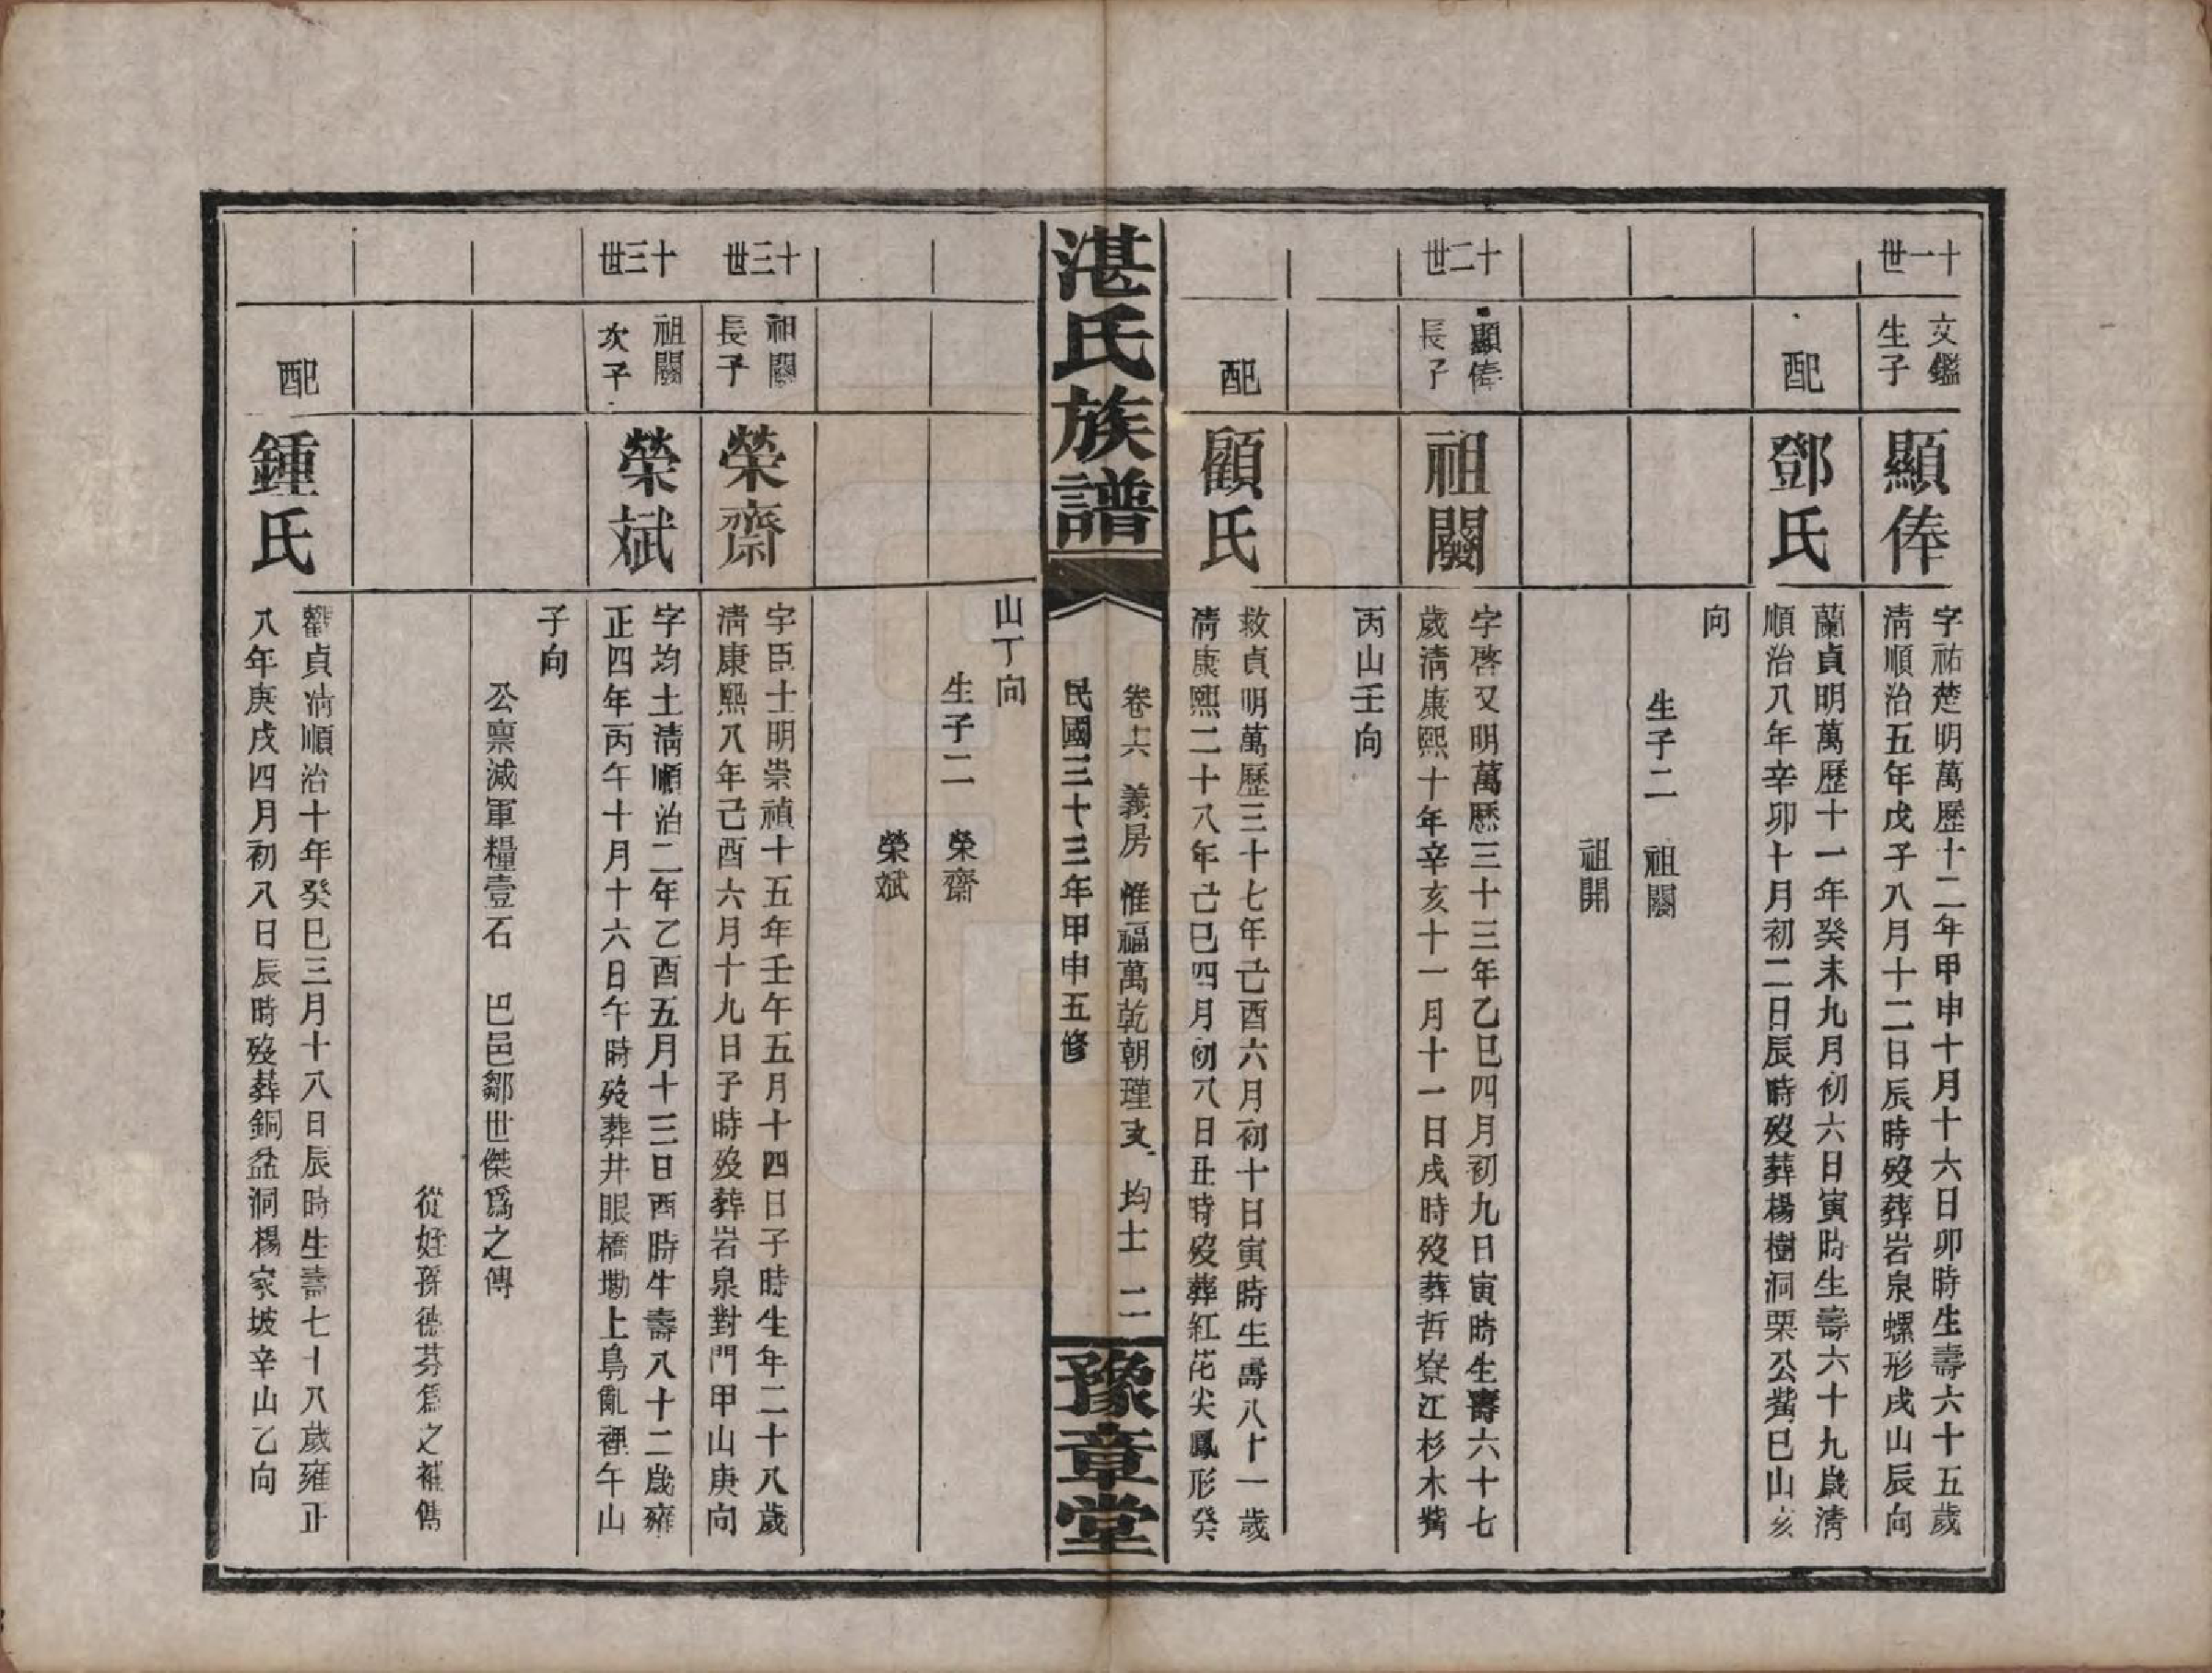 十一世
文鑑
生子
顯俸
字祐楚明萬歷十二年甲申十月十六日卯時生壽六十五歲
清順治五年戊子八月十二日辰時歿葬岩泉螺形戌山辰向
配
鄧氏
蘭貞明萬歷十一年癸未九月初六日寅時生壽六十九歲清
順治八年辛卯十月初二日辰時歿葬楊樹洞栗公觜巳山亥
向
生子二 祖闓
祖開
十二世
顯俸
長子
祖闓
字啓又明萬歷三十三年乙巳四月初九日寅時生壽六十七
歲清康熙十年辛亥十一月十一日戌時歿葬哲寮江杉木觜
丙山壬向
配
顧氏
救貞明萬歷三十七年己酉六月初十日寅時生壽八十一歲
清康熙二十八年己巳四月初八日丑時歿葬紅花尖鳳形癸
湛氏族譜
卷十六 義房 惟福萬乾朝瑾支 均士 二
民國三十三年甲申五修
豫章堂
山丁向
生子二 榮齋
榮斌
十三世
祖闓
長子
榮齋
字臣士明崇禎十五年壬午五月十四日子時生年二十八歲
清康熙八年己酉六月十九日子時歿葬岩泉對門甲山庚向
十三世
祖闓
次子
榮斌
字均士清順治二年乙酉五月十三日酉時生壽八十二歲雍
正四年丙午十月十六日午時歿葬井眼橋墈上烏亂裡午山
子向
公稟減軍糧壹石 巴邑鄒世傑爲之傳
從姪孫德芬爲之補傳
配
鍾氏
勸貞清順治十年癸巳三月十八日辰時生壽七十八歲雍正
八年庚戌四月初八日辰時歿葬銅盆洞楊家坡辛山乙向